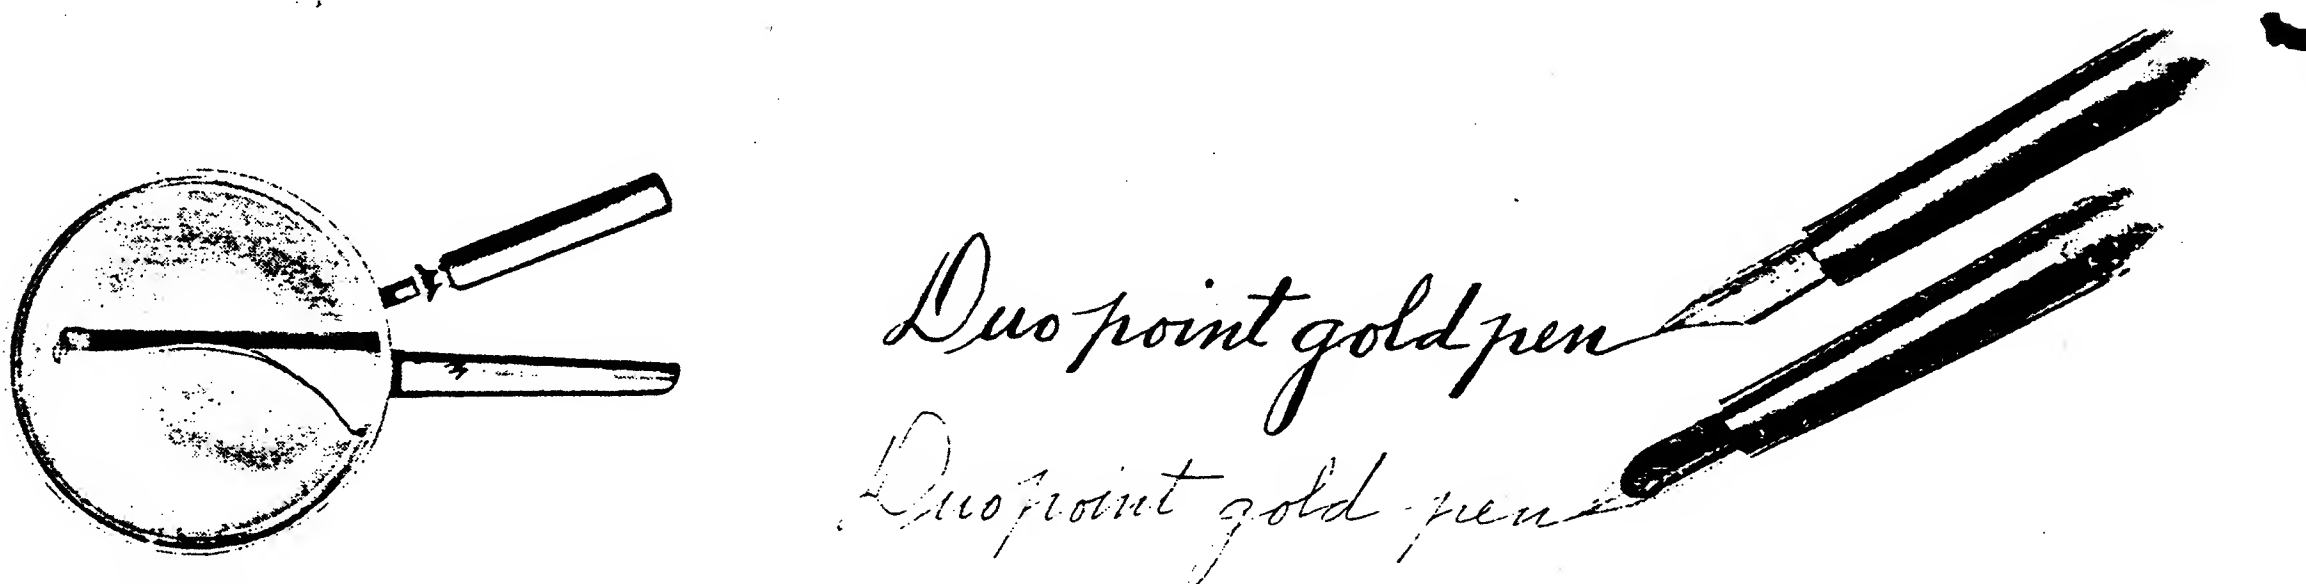 Duo point gold pen
Duo point gold pen